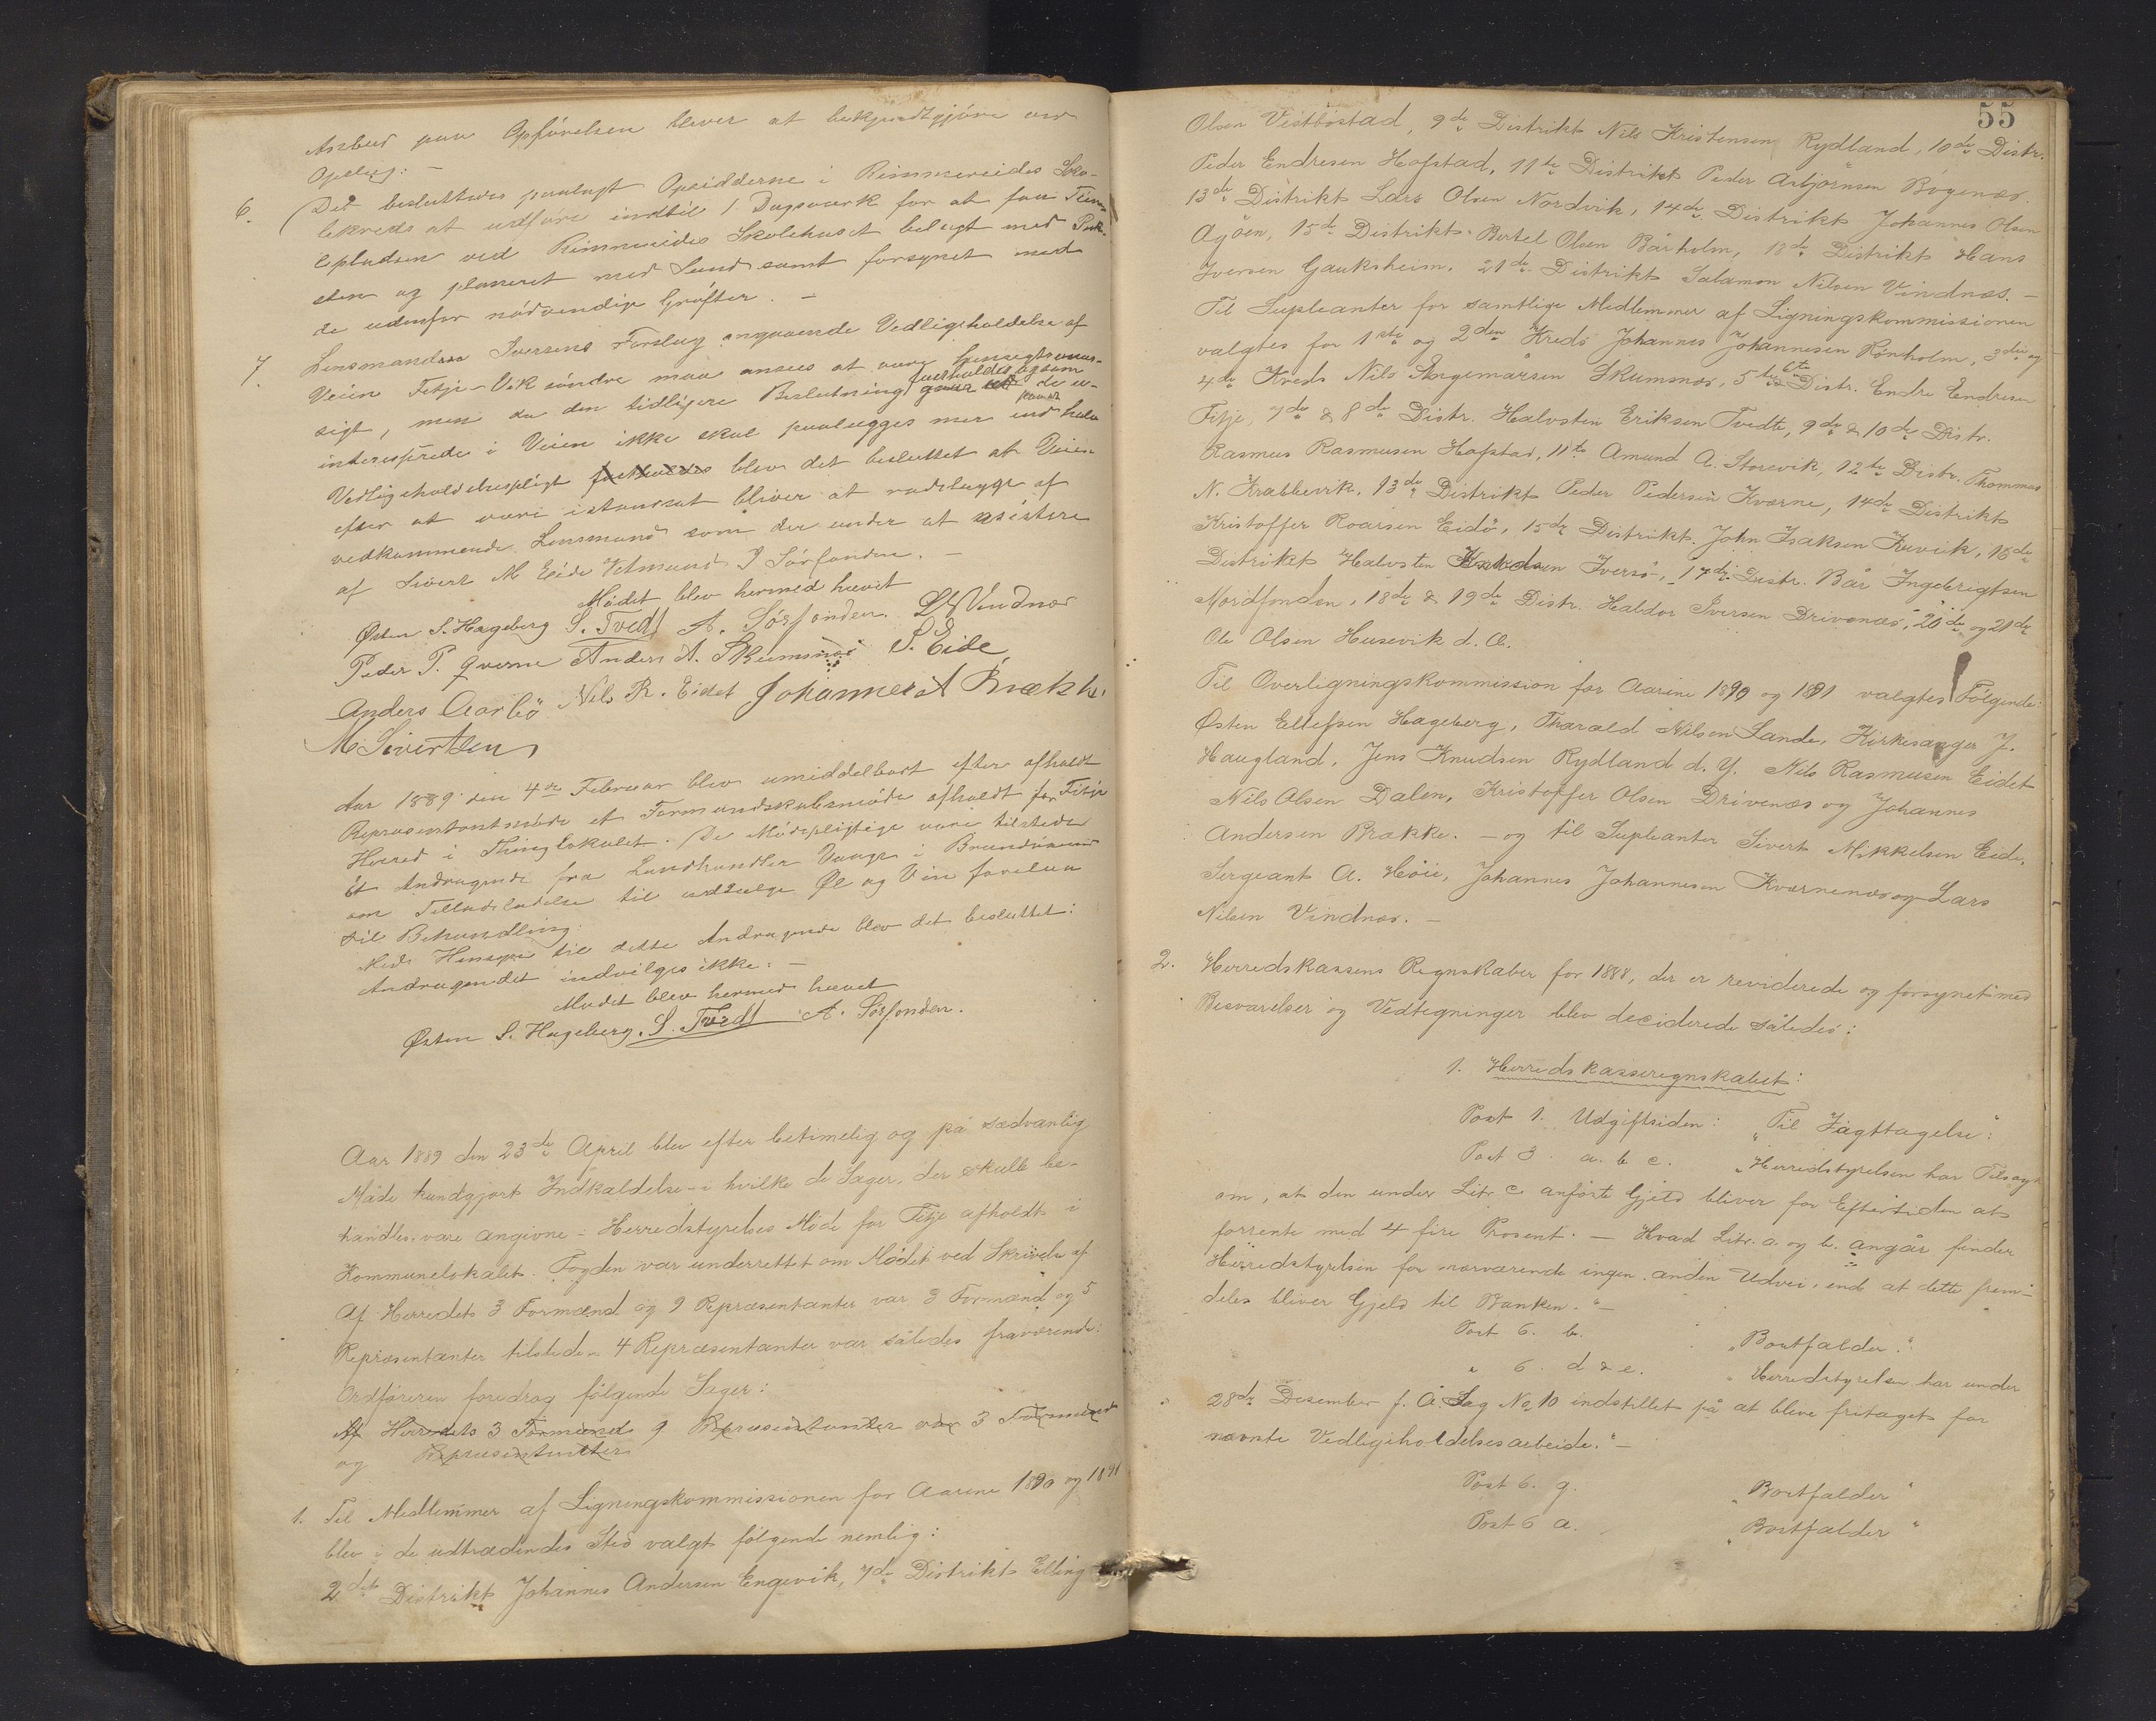 Anbud paa Opførelsen bliver at bekjendtgjøre ved
Opslag: —
6. Det besluttedes paalagt Opsidderne i Rimmereides Sko-
lekreds at udføre indtil 1 Dagsværk for at faa Tom-
tepladsen ved Rimmereides Skolehuset belagt med Puk-
sten og planeret med Sand samt forsynet med
de udenfor nødvendige Grøfter. —
7. Lensmand Iversens Forslag angaaende Vedligeholdelse af
Veien Fitje-Vik søndre maa ansees at være hensigtsmæs-
sigt, men da den tidligere Beslutning fastholdes ogsom gaar ud paa at de u-
interesserede i Veien ikke skal paalægges mer end halv
Vedligeholdelsespligt fastholdes blev det besluttet at Veien
efter at være istandsat bliver at rodelægge af
vedkommende Lensmand som der under at assistere
af Sivert M Eide Velmund I Sørfonden. —
Mødet blev hermed hævet
Østen S. Hageberg S. Tvedt A. Sørfonden. L N Vindnæs
Peder P. Qverne Anders A. Skumsnæs S. Eide
Anders Aarbø Nils R. Eidet Johannes A Brække
M. Sivertsen
Aar 1889 den 4de Februar blev umiddelbart efter afholdt
Repræsentantmøde et Formandskabsmøde afholdt for Fitje
Herred i Thinglokalet. De Mødepligtige vare tilstede
Et Andragende fra Landhandler Vaage i Brandasund
om Tilladeladelse til udsalg Øl og Vin forelaa
til Behandling.
Med Hensyn til dette Andragende blev det besluttet:
Andragendet indvilges ikke. —
Mødet blev hermed hævet
Østen S. Hageberg. S. Tvedt A. Sørfonden.
Aar 1889 den 23de April blev efter betimelig og på sædvanlig
Måde kundgjort Indkaldelse - i hvilke de Sager, der skulle be-
handles, vare angivne - Herredstyrelses Møde for Fitje afholdt i
Kommunelokalet. Fogden var underrettet om Mødet ved Skrivelse af
Af Herredets 3 Formænd og 9 Repræsentanter var 3 Formænd og 5
Repræsentanter tilstede. 4 Repræsentanter var således fraværende:
Ordføreren foredrog følgende Sager:
Af Herredets 3 Formænd 9 Repræsentanter var 3 Formænd
og Repræsentanter
1. Til Medlemmer af Ligningskommissionen for Aarene 1890 og 1891
blev i de udtrædendes Sted valgt følgende nemlig:
2det Distrikt Johannes Andersen Engevik, 7de Distrikt Elling
55
Olsen Vestbøstad, 9de Distrikt Nils Kristensen Rydland, 10de Distr.
Peder Endresen Hofstad, 11te Distrikt Peder Asbjørnsen Bøgenæs.
13de Distrikt Lars Olsen Nordvik, 14de Distrikt Johannes Olsen
Agøen, 15de Distrikt Bertel Olsen Bårholm, 18de Distrikt Hans
Iversen Gauksheim. 21de Distrikt Salamon Nilsen Vindnæs. —
Til Supleanter for samtlige Medlemmer af Ligningskommissionen
valgtes for 1ste og 2den Kreds Johannes Johannesen Rønholm, 3die og
4de Kreds Nils Ingemarsen Skumsnæs, 5te & 6te Distr. Endre Endresen
Fitje, 7de & 8de Distr. Halvsten Eriksen Tvedte, 9de & 10de Distr.
Rasmus Rasmusen Hofstad, 11te Amund A. Storevik, 12te Distr. Thommas
N. Krabbevik. 13de Distrikt Peder Pedersen Kværne, 14de Distrikt
Kristoffer Roarsen Eidø, 15de Distrikt. John Isaksen Kuvik, 16de
Distrikt Halvsten Knudsen Iversø, 17de Distr. Bår Ingebrigtsen
Nordfonden, 18de & 19de Distr. Haldor Iversen Drivenæs, 20de og 21de
Ole Olsen Husevik d. Æ.
Til Overligningskommission for Aarene 1890 og 1891 valgtes Følgende:
Østen Ellefsen Hageberg, Tharald Nilsen Sande, Kirkesanger J.
Haugland, Jens Knudsen Rydland d. Y. Nils Rasmusen Eidet
Nils Olsen Dalen, Kristoffer Olsen Drivenæs og Johannes
Andersen Brække. — og til Supleanter Sivert Mikkelsen Eide,
Sergeant A. Høie, Johannes Johannesen Kværnenæs og Lars
Nilsen Vindnæs. —
2. Herredskassens Regnskaber for 1888, der er reviderede og forsynet med
Besvarelser og Vedtegninger blev deciderede således:
1. Herredskasseregnskabet:
Post 1. Udgiftsiden: "Til Iagttagelse":
Post 3. a. b c. "Herredstyrelsen har Tilsagn
om, at den under Litr. c anførte Gjeld bliver for Eftertiden at
forrente med 4 fire Prosent. — Hvad Litr. a. og b. angår finder
Herredstyrelsen for nærværende ingen anden Udvei, end at dette frem-
deles bliver Gjeld til Banken." —
Post 6. b. "Bortfalder."
" 6. d & e. "Herredstyrelsen har under
28de Desember f. Å. Sag No 10 indstillet på at blive fritaget for
nævnte Vedligeholdelsesarbeide." —
Post 6. g. "Bortfalder"
Post 6 a. "Bortfalder"